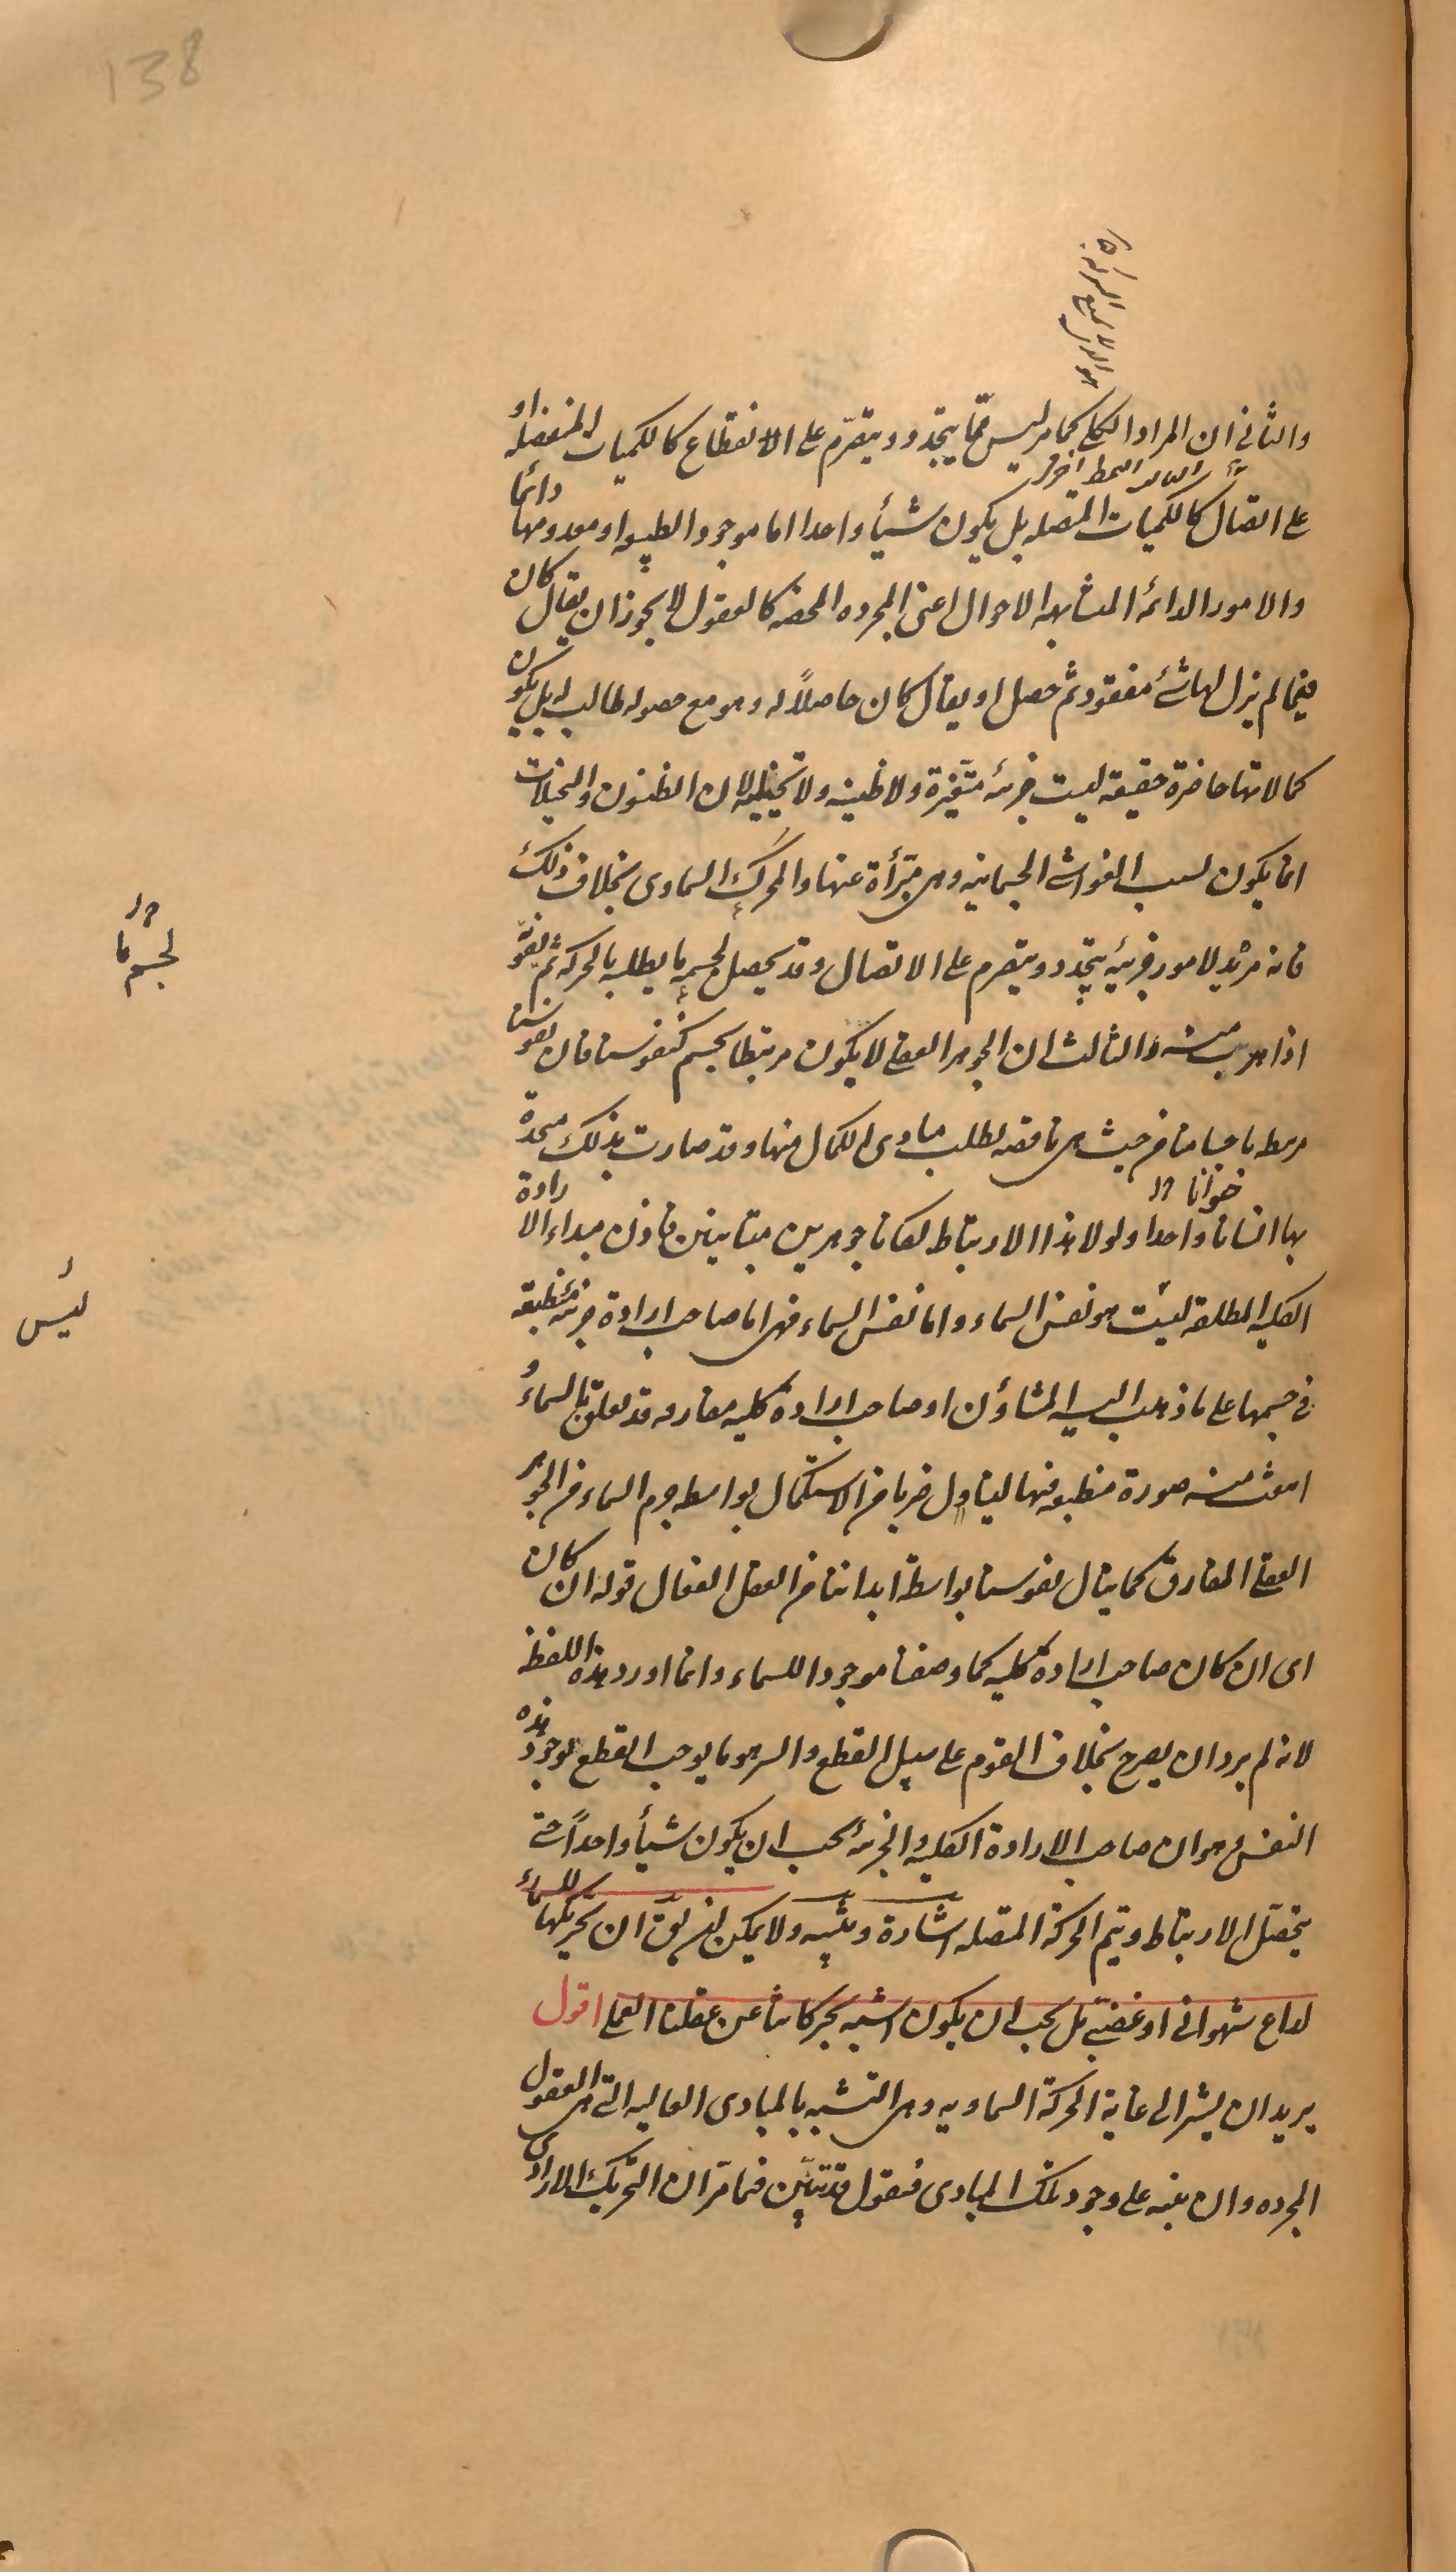 138
والثانی ان المراد الکلی کما مر لیس مما یتجدد ویتصرم علی الانقطاع کالکمیات المنفصله او
علی اتصال کالکمیات المتصله بل یکون شیأ واحدا اما موجود الطبیعه او معدومها دائما
والامور الدائمه المتشابهه الاحوال اعنی المجرده المحضه کالعقول لا یجوز ان یقال کان
فیما لم یزل لها شئ مفقود ثم حصل او یقال کان حاصلاً له وهو مع حصوله طالب له بل یکون
کمالاتها حاضرة حقیقیه لیست جزئیه متغیرة ولا ظنیه ولا تخیلیه لان الظنون والتخیلات
انما یکون لسبب الغواشی الجسمانیه وهی مبرأة عنها والمحرک السماوی بخلاف ذلک
فانه مرید لامور جزئیه یتجدد ویتصرم علی الاتصال وقد یحصل لجسمه ما یطلبه بالحرکه ثم یفوته
اذا هرب منه والثالث ان الجوهر العقلی لا یکون مرتبطا بجسم کنفوسنا فان نفوسنا
مرتبطه باجسامنا من حیث هی ناقصه لطلب مبادی الکمال منها وقد صارت بذلک متحدة
بها انسانا واحدا ولولا هذا الارتباط لکانا جوهرین متباینین فاذن مبداء الارادة
الکلیه المطلقه لیست هو نفس السماء واما نفس السماء فهی اما صاحب ارادة جزئیه منطبعه
فی جسمها علی ما ذهب الیه المشاؤن او صاحب ارادة کلیه مفارقه قد تعلق بالسماء و
انبعث منه صورة منطبعه فیها لینال ضربا من الاستکمال بواسطه جرم السماء من الجوهر
العقلی المفارق کما ینال نفوسنا بواسطة ابداننا من العقل الفعال قوله ان کان
ای ان کان صاحب ارادة کلیه کما وصفنا موجودا للسماء وانما اورد هذه اللفظه
لانه لم یرد ان یصرح بخلاف القوم علی سبیل القطع والسر هو ما یوجب القطع بوجود هذه
النفس وهو ان صاحب الارادة الکلیه والجزئیه یجب ان یکون شیأ واحداً حتی
یتحصل الارتباط ویتم الحرکة المتصله اشارة وتنبیه ولا یمکن ان یق ان تحریکها للسماء
لداع شهوانی او غضبی بل یجب ان یکون اشبه بحرکاتنا عن عقلنا العملی اقول
یرید ان یشیر الی غایة الحرکة السماویه وهی التشبه بالمبادی العالیه التی هی العقول
المجرده وان ینبه علی وجود تلک المبادی فنقول قد تبین فیما مر ان التحریک الارادی
لجسم ما
لیس